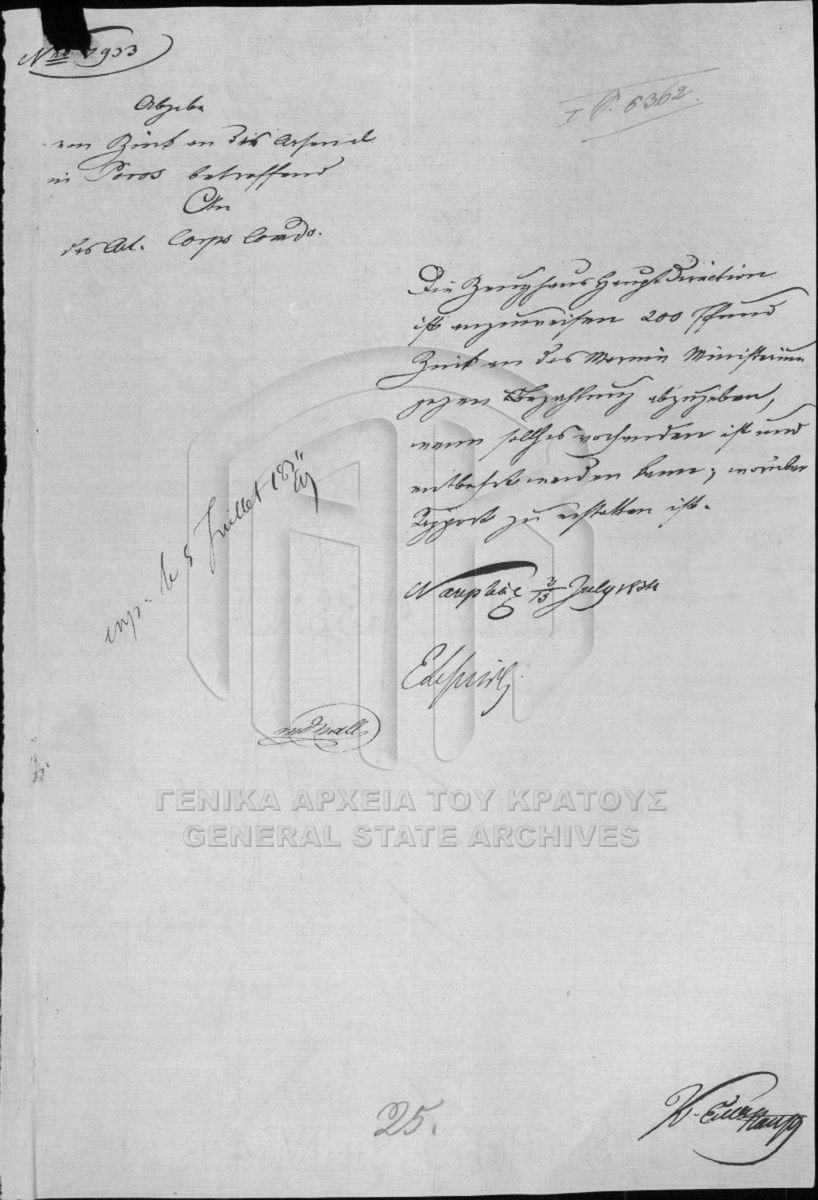 Abgabe
von Zink an das Arsenal
in Poros betreffend
An
das Art. Corps Comdo.
I P. 6362.
Die Zeughaus Haupt Direction
ist anzuweisen 200 Pfund
Zink an das Marine Ministerium
gegen Bezahlung abzugeben,
wenn solches vorhanden ist und
entbehrt werden kann; worüber
Rapport zu erstatten ist.
Nauplia 3/15 July 1834
exp. le 5 Juillet 1834
ΓΕΝΙΚΑ ΑΡΧΕΙΑ ΤΟΥ ΚΡΑΤΟΥΣ
GENERAL STATE ARCHIVES
25.